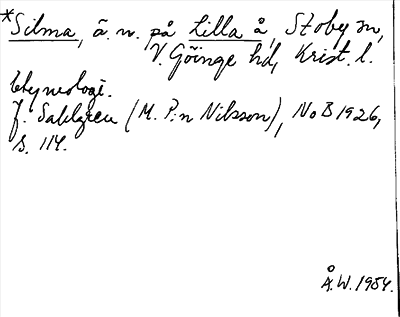 *Silma, ä. n. på Lilla å, Stoby sn,
V. Göinge hd, Krist. l.
Etymologi.
J. Sahlgren (M. P:n Nilsson), NoB 1926,
s. 114.
Å.W. 1954.